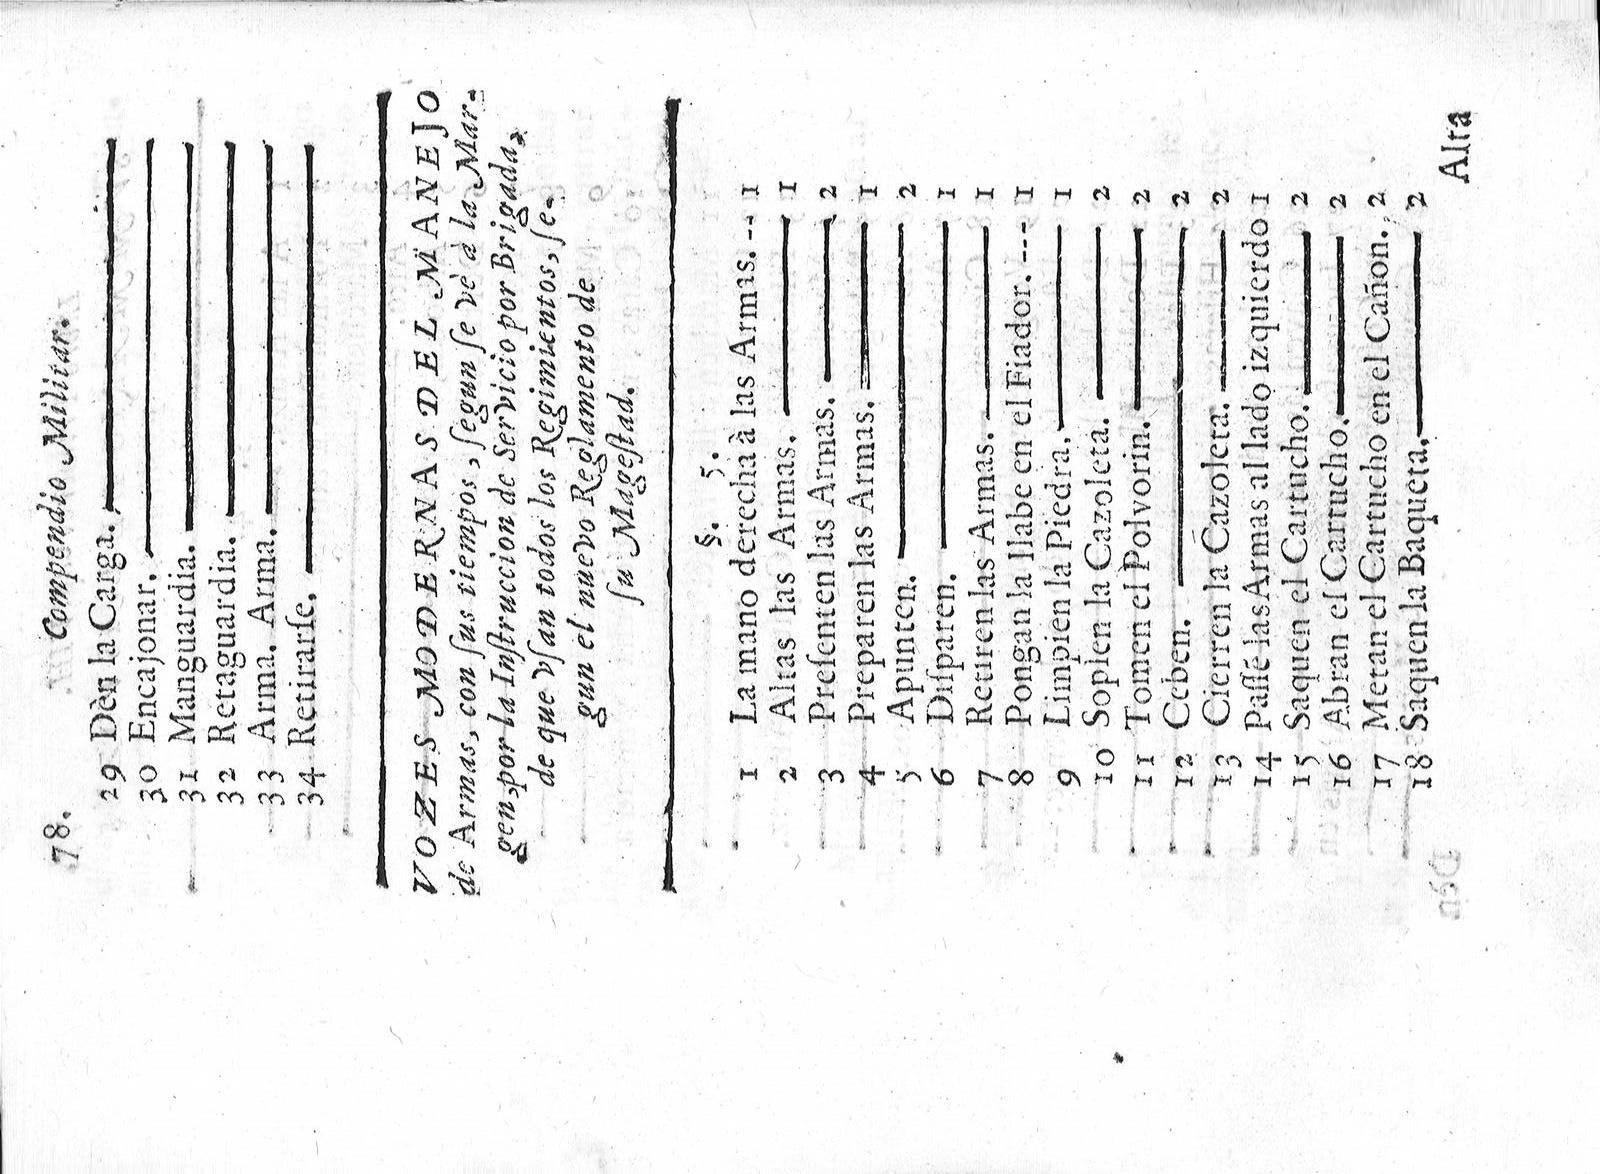 78. Compendio Militar.
29 Dèn la Carga.
30 Encajonar.
31 Manguardia.
32 Retaguardia.
33 Arma. Arma.
34 Retirarſe.
VOZES MODERNAS DEL MANEJO
de Armas, con ſus tiempos, ſegun ſe vè à la Mar-
gen, por la Inſtruccion de Servicio por Brigada,
de que vſan todos los Regimientos, ſe-
gun el nuevo Reglamento de
ſu Mageſtad.
§. 5.
1 La mano derecha à las Armas. -- 1
2 Altas las Armas. 1
3 Preſenten las Armas. 2
4 Preparen las Armas. 1
5 Apunten. 2
6 Diſparen. 1
7 Retiren las Armas. 1
8 Pongan la llabe en el Fiador. --- 1
9 Limpien la Piedra. 1
10 Soplen la Cazoleta. 2
11 Tomen el Polvorin. 2
12 Ceben. 2
13 Cierren la Cazoleta. 2
14 Paſſè las Armas al lado izquierdo 1
15 Saquen el Cartucho. 2
16 Abran el Cartucho. 2
17 Metan el Cartucho en el Cañon. 2
18 Saquen la Baqueta. 2
Alta